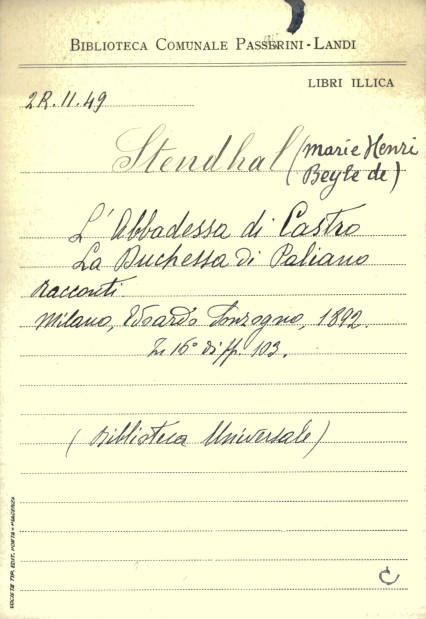 BIBLIOTECA COMUNALE PASSERINI-LANDI
LIBRI ILLICA
2R.II.49
Stendhal (Marie Henri
Beyle de)
L'Abbadessa di Castro
La Duchessa di Paliano
Racconti.
Milano, Edoardo Sonzogno, 1892.
In 16° di pp. 103.
(Biblioteca Universale)
SOCIETÀ TIP. EDIT. PORTA - PIACENZA
C